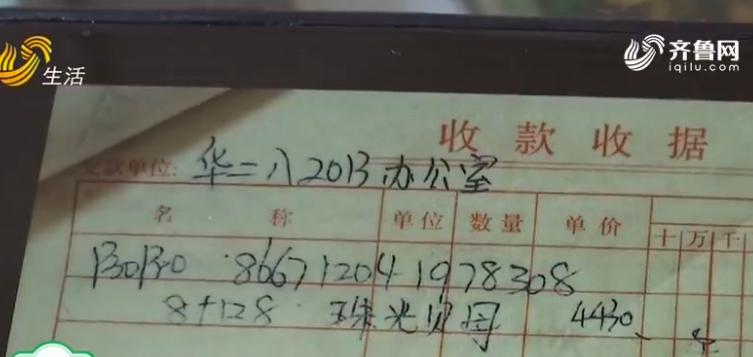 生活
齐鲁网
iqilu.com
收款收据
交款单位: 华二八201B办公室
名称 单位 数量 单价 十 万 千
866712041978308
8+128 珠光贝母 4430